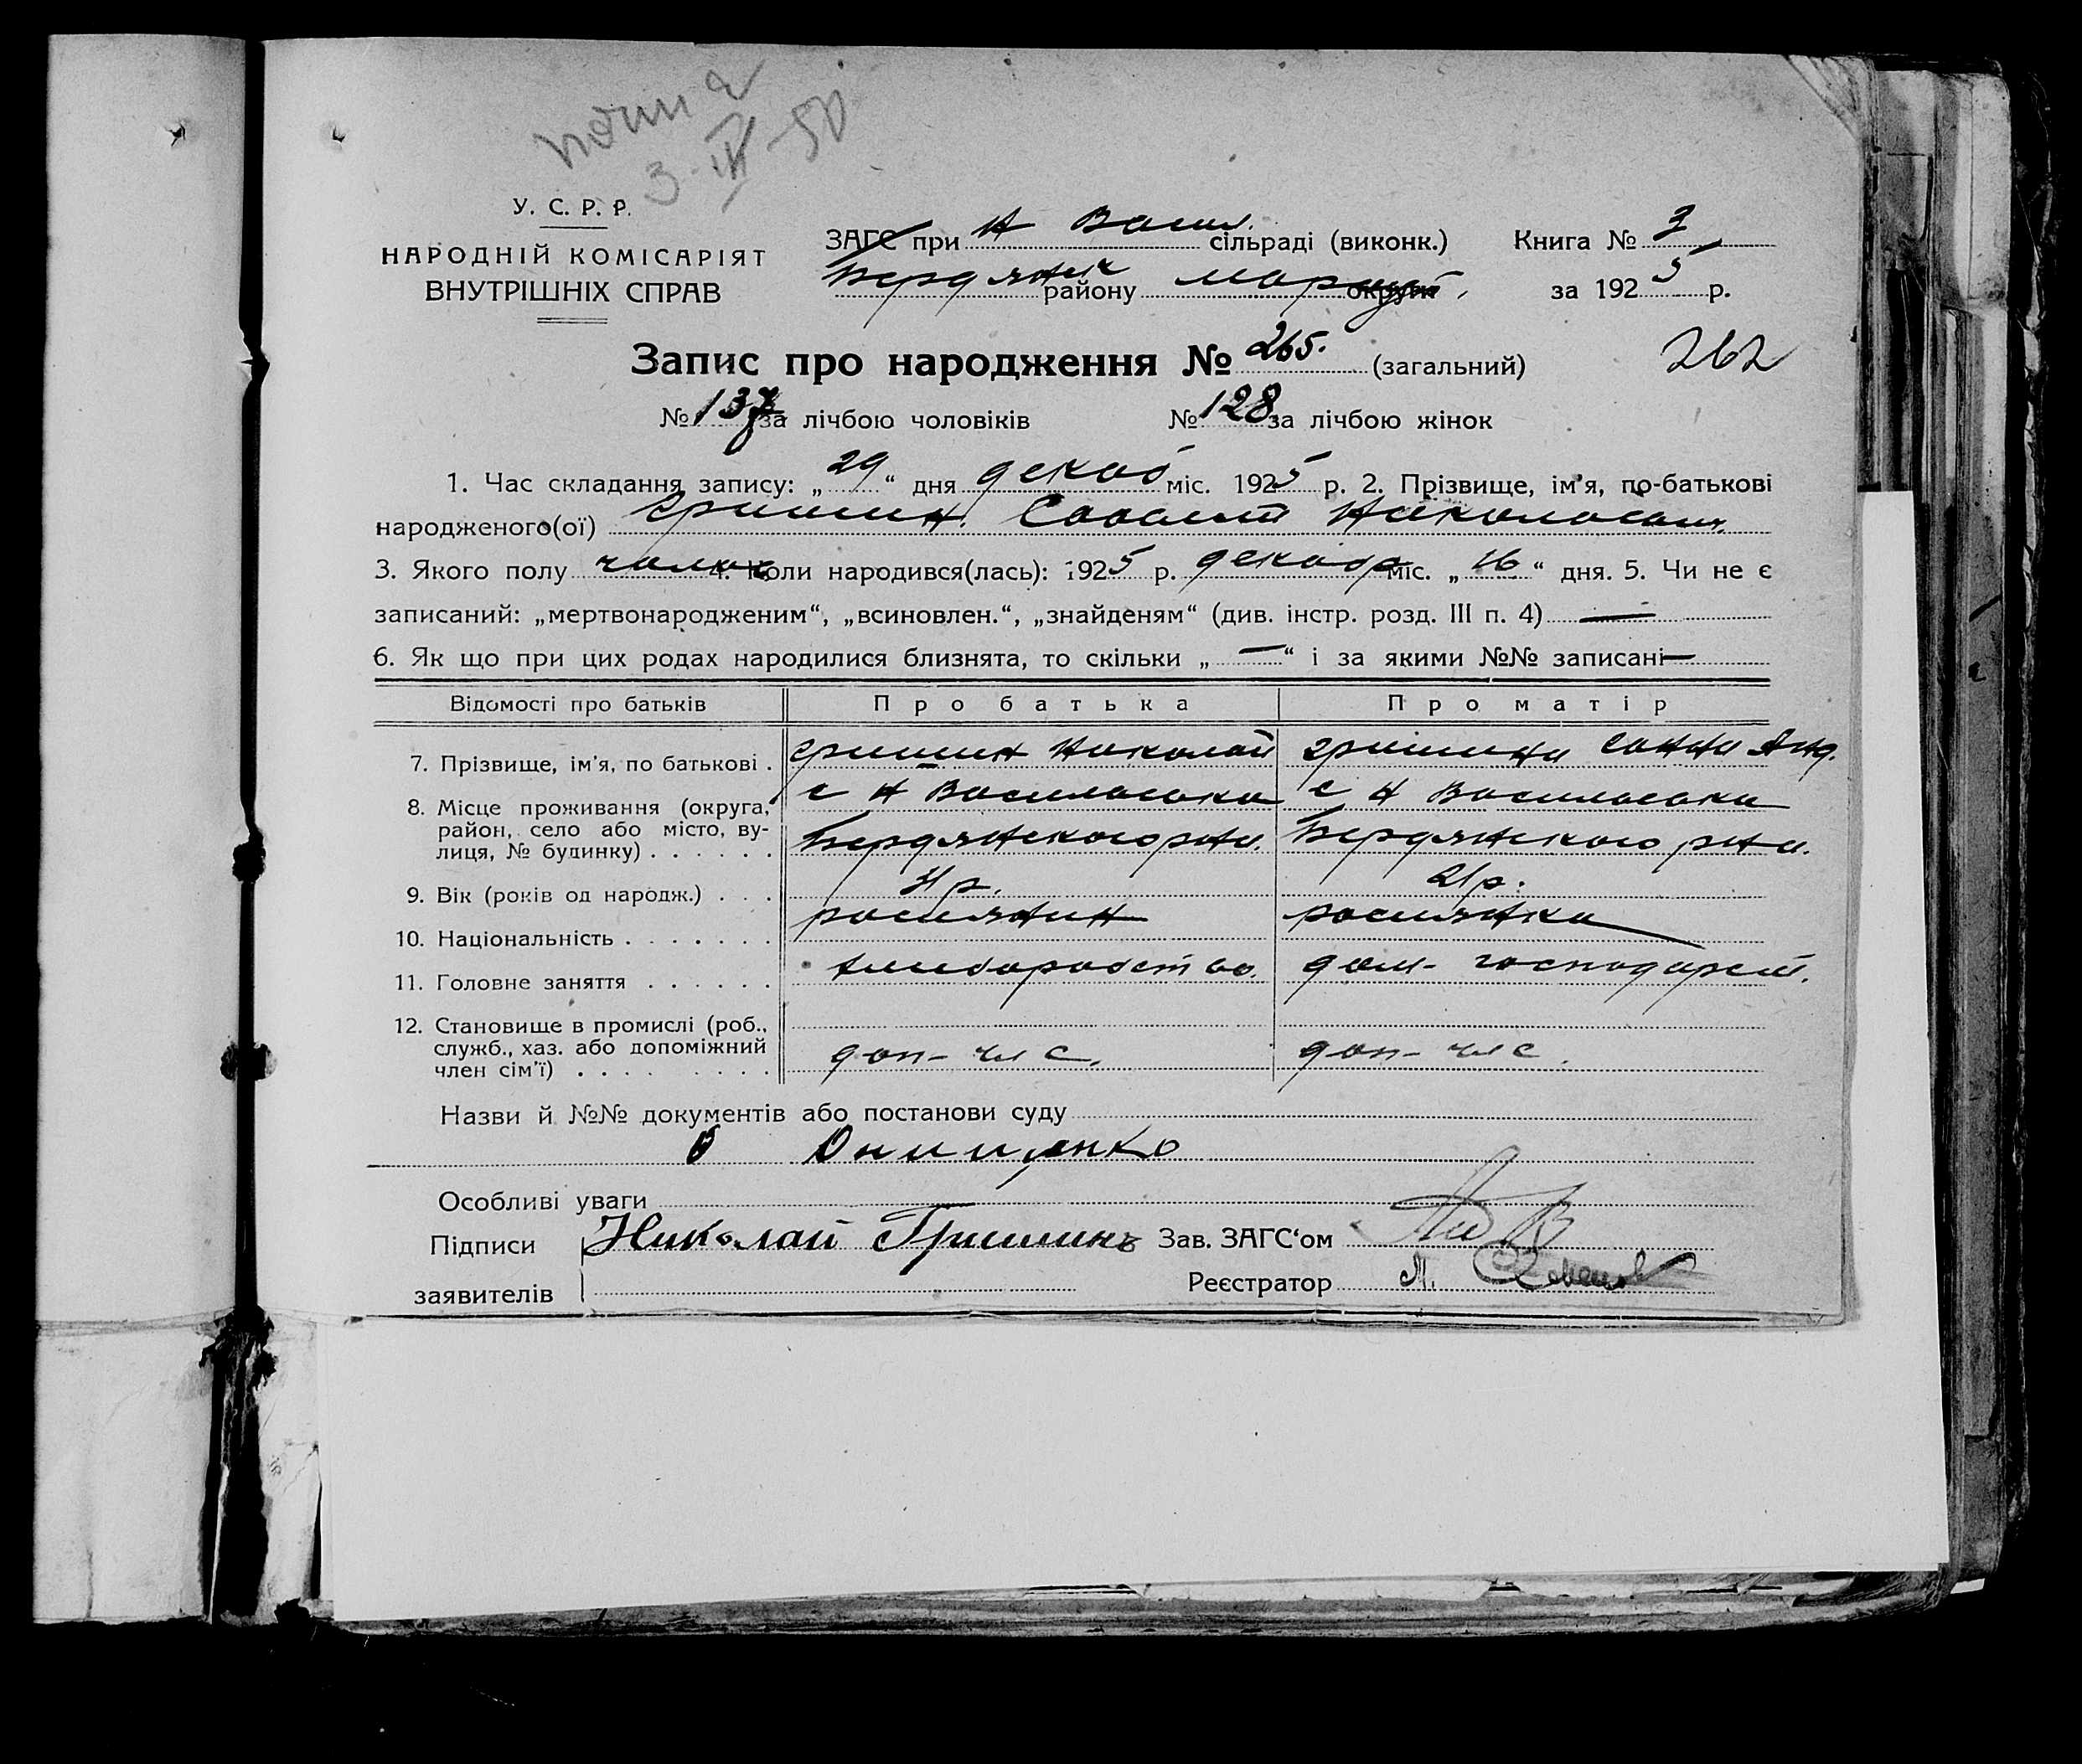 3-III-50
У. С. Р. Р.
НАРОДНІЙ КОМІСАРІЯТ
ВНУТРІШНІХ СПРАВ
ЗАГС при Н Васил. сільраді (виконк.) Книга № 3
Бердянск району Мариуп округи за 1925 р.
Запис про народження № 265. (загальний) 262
№ 137 за лічбою чоловіків № 128 за лічбою жінок
1. Час складання запису: „29“ дня декаб міс. 1925 р. 2. Прізвище, ім'я, по-батькові
народженого(ої) Гришин. Николаевич
3. Якого полу чолов 4. Коли народився(лась): 1925 р. декабр міс. „16“ дня. 5. Чи не є
записаний: „мертвонародженим“, „всиновлен.“, „знайденям“ (див. інстр. розд. III п. 4) —
6. Як що при цих родах народилися близнята, то скільки „—“ і за якими №№ записані —
Відомості про батьків Про батька Про матір
7. Прізвище, ім'я, по батькові . Гришин Николай Гришина Анд.
8. Місце проживання (округа, с Н Васильевка с Н Васильевка
район, село або місто, ву-
лиця, № будинку) . . . . . . Бердянского рна. Бердянского рна.
9. Вік (років од народж.) . . . 31 р. 21 р.
10. Національність . . . . . . . росиянин росиянка
11. Головне заняття . . . . . . хлиборобство. дом-господарст.
12. Становище в промислі (роб.,
служб., хаз. або допоміжний доп-чл с. доп-чл с.
член сім'ї) . . . . . . . . .
Назви й №№ документів або постанови суду
Онищенко
Особливі уваги
Підписи Николай Гришинъ Зав. ЗАГС‘ом
заявителів Реєстратор М.